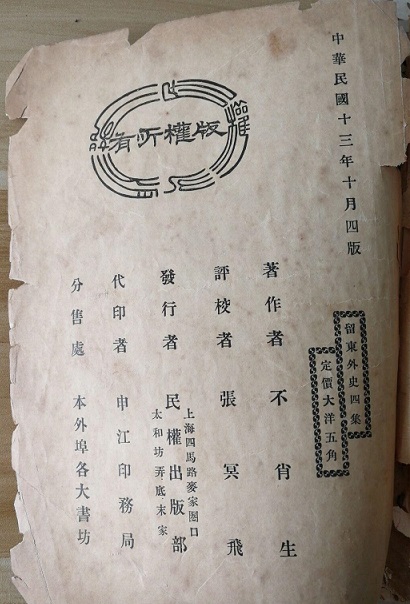 中華民國十三年十月四版
留東外史四集
定價大洋五角
版權所有
著作者 不肖生
評校者 張冥飛
發行者 民權出版部
上海四馬路麥家圈口
太和坊弄底末家
代印者 申江印務局
分售處 本外埠各大書坊